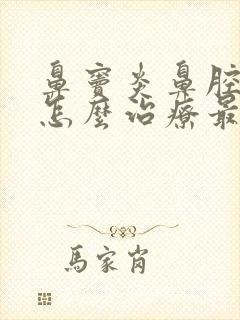 鼻竇炎鼻腔
怎麼治療最
馬家肖